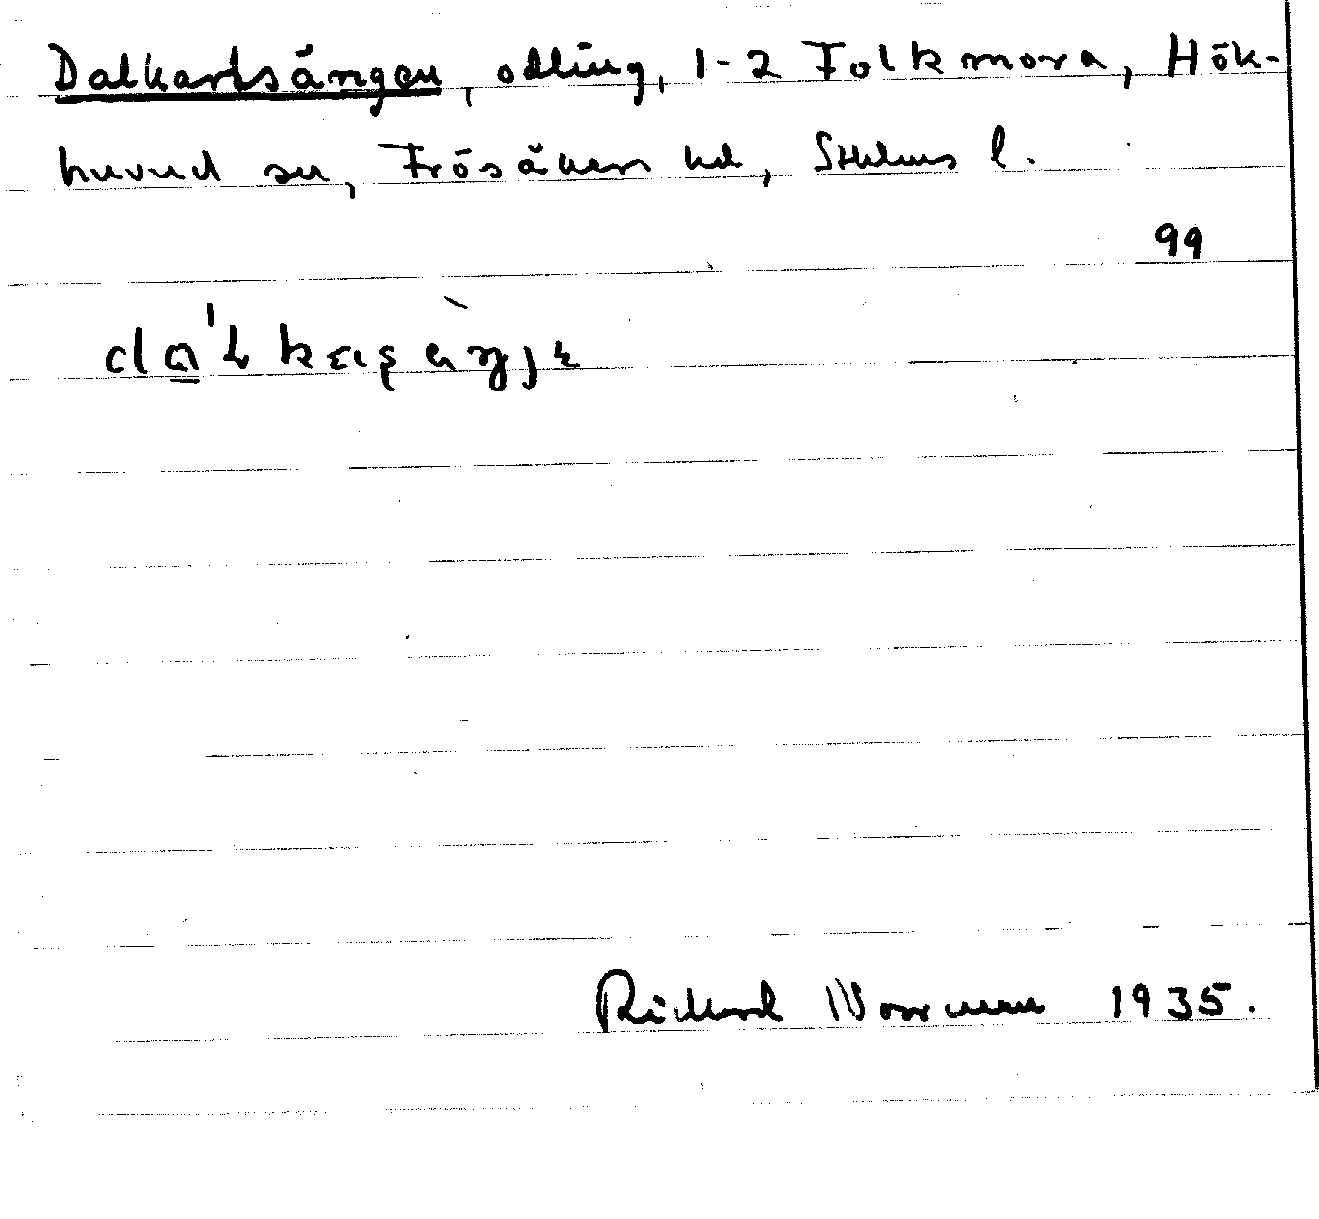 Dalkarlsängen, odling, 1-2 Folkmora, Hök-
huvud sn, Frösåkers hd, Sthlms l.
99
Rickard Norrman 1935.